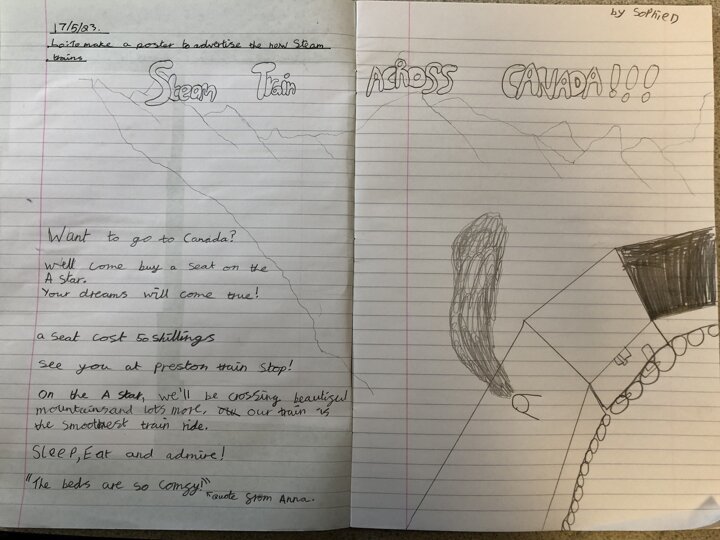 by Sophie D
17/5/23.
L.O: To make a poster to advertise the new Steam
trains
Steam Train ACROSS CANADA!!!
Want to go to Canada?
Well come buy a seat on the
A Star.
Your dreams will come true!
a seat cost 50 shillings
see you at preston train stop!
On the A star, we'll be crossing beautiful
mountains and lots more. our train is
the smoothest train ride.
SLeeP, Eat and admire!
"The beds are so comfy!"
quote from Anna.